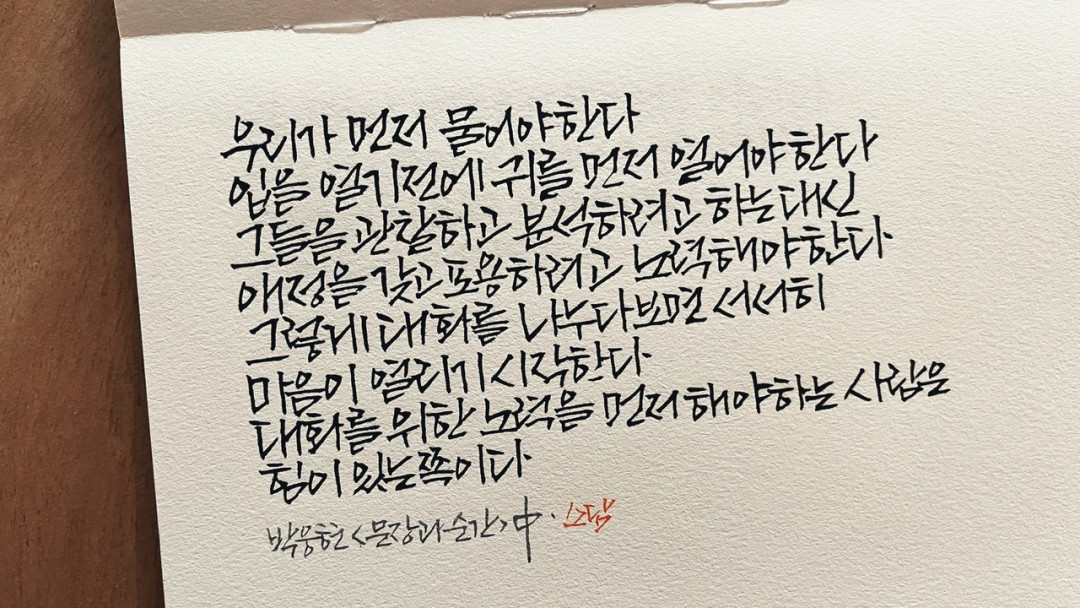 우리가 먼저 물어야한다
입을 열기전에 귀를 먼저 열어야한다
그들을 관찰하고 분석하려고 하는대신
애정을 갖고 포용하려고 노력해야한다
그렇게 대화를 나누다보면 서서히
마음이 열리기 시작한다
대화를 위한 노력을 먼저 해야하는 사람은
힘이 있는쪽이다
박웅현 <문장과순간> 中. 소담